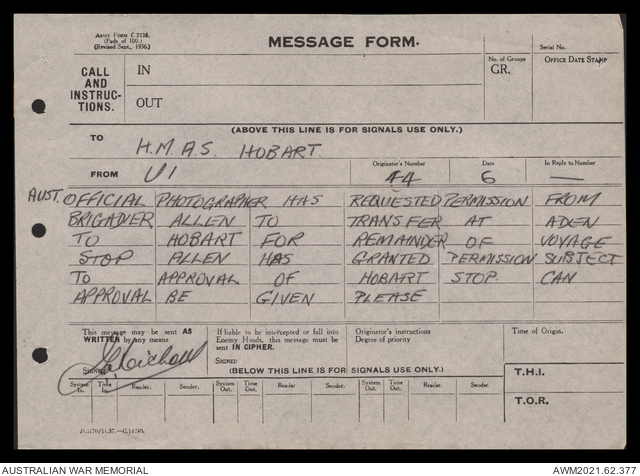 ARMY FORM C.2130.
(Pads of 100.)
(Revised Sept., 1936.)
MESSAGE FORM.
Serial No.
CALL AND INSTRUC- TIONS.
IN
OUT
No. of Groups
GR.
OFFICE DATE STAMP
(ABOVE THIS LINE IS FOR SIGNALS USE ONLY.)
TO
H.M.A.S. HOBART
FROM
Originator's Number
44
Date
6
In Reply to Number
—
AUST. OFFICIAL PHOTOGRAPHER HAS REQUESTED PERMISSION FROM
BRIGADIER ALLEN TO TRANSFER AT ADEN
TO HOBART FOR REMAINDER OF VOYAGE
STOP ALLEN HAS GRANTED PERMISSION SUBJECT
TO APPROVAL OF HOBART STOP. CAN
APPROVAL BE GIVEN PLEASE
This message may be sent AS
WRITTEN by any means
SIGNED
If liable to be intercepted or fall into
Enemy Hands, this message must be
sent IN CIPHER.
SIGNED
Originator's instructions
Degree of priority
Time of Origin.
(BELOW THIS LINE IS FOR SIGNALS USE ONLY.)
T.H.I.
T.O.R.
System In. Time In. Reader. Sender. System Out. Time Out. Reader. Sender. System Out. Time Out. Reader. Sender.
AUSTRALIAN WAR MEMORIAL
AWM2021.62.377